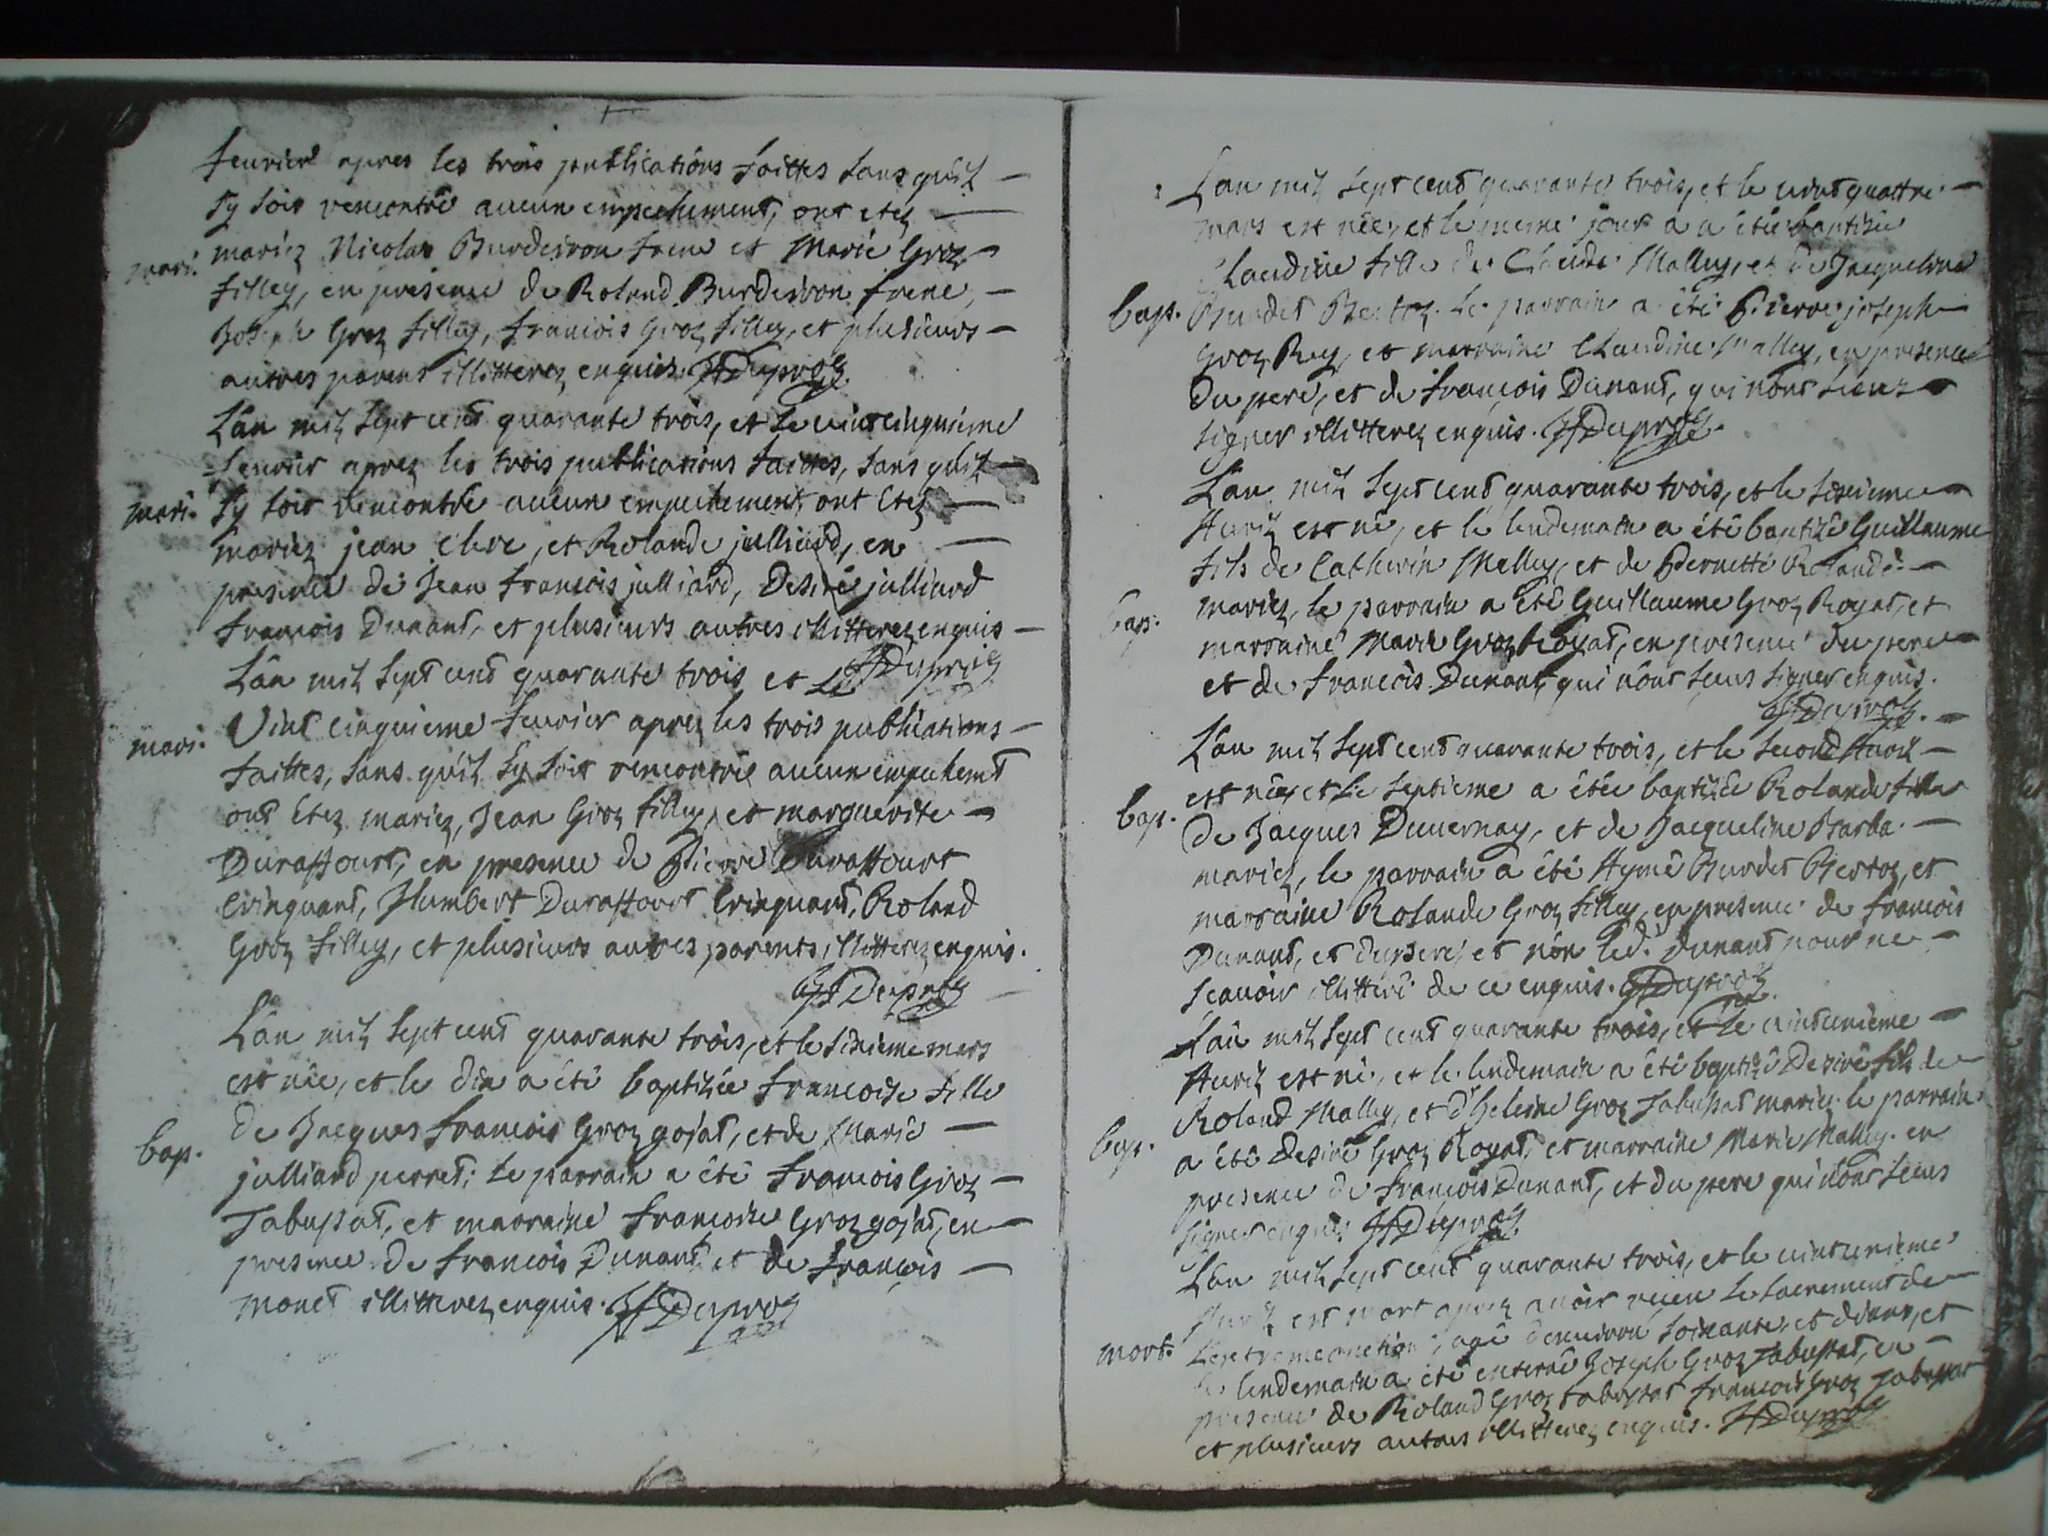 feurier apres les trois publications faittes sans qu'il
sy soit rencontré aucun empechement, ont etez
mari. mariez Nicolas Burdeiron frene et Marie Groz
filley, en presence de Roland Burdeiron frene,
Joseph Groz filley, francois Groz filley, et plusieurs
autres parens illitterez enquis. Duproz
L'an mil sept cent quarante trois, et le vint cinquieme
feurier aprez les trois publications faittes, sans qu'il
mari. sy soit rencontré aucun empechement, ont etez
mariez jean clerc, et Rolande julliard, en
presence de Jean francois julliard, Desiré julliard
francois Dunant, et plusieurs autres illitterez enquis
Duproz
L'an mil sept cent quarante trois et le
mari. Vint cinquieme feurier aprez les trois publications
faittes, sans qu'il sy soit rencontré aucun empechemt
ont etez mariez, Jean Groz filley, et marguerite
Duraffourt, en presence de Pierre Duraffourt
Cringuant, Humbert Duraffourt Cringuant, Roland
Groz filley, et plusieurs autres parents, illitterez enquis.
Duproz
L'an mil sept cent quarante trois, et le sixieme mars
est née, et le dix a été baptizée francoise fille
de Jacques francois Groz gojat, et de Marie
bap. julliard perret; le parrain a été francois Groz
Tabussat, et marraine francoise Groz gojat, en
presence de francois Dunant et de françois
monet illitterez enquis. Duproz
L'an mil sept cent quarante trois, et le vint quattre
mars est née, et le meme jour a été baptizée
Claudine fille de Claude Malley, et de Jacqueline
bap. Burdet Bertoz. le parrain a été Pierre joseph
Groz Rey, et marraine Claudine Malley, en presence
du pere, et de françois Dunant, qui n'ont sceus
signer illitterez enquis. Duproz.
L'an mil sept cent quarante trois, et le sixieme
Auril est né, et le lendemain a été baptizé Guillaume
fils de Catherin Malley, et de Pernette Rolande
bap. mariez, le parrain a été Guillaume Groz Royat, et
marraine Marie Groz Royat, en presence du pere
et de francois Dunant, qui n'ont sceus signer enquis.
Duproz.
L'an mil sept cent quarante trois, et le second Auril
est née, et le septieme a étée baptizée Rolande fille
bap. de Jacques Duuernay, et de Jacqueline Barba.
mariez, le parrain a été Aymé Burdet Bertoz, et
marraine Rolande Groz filley, en presence de francois
Dunant, et du pere, et non led. Dunant pour ne
scauoir illitteré de ce enquis. Duproz
L'an mil sept cent quarante trois, et le vintunième
Auril est né, et le lendemain a été baptizé Desiré fils de
Roland Malley, et d'heleine Groz Tabussat mariez. le parrain
bap. a été Desiré Groz Royat, et marraine Marie Malley. en
presence de françois Dunant, et du pere qui n'ont sceus
signer enquis Duproz
L'an mil sept cent quarante trois, et le vintunieme
Auril est mort aprez auoir receu le sacrement de
mort. L'extremeonction, agé d'enuiron soixante et dix ans, et
le lendemain a été enterré Joseph Groz Tabussat, en
presence de Roland Groz tabussat francois Groz tabussat
et plusieurs autres illitterez enquis. Duproz